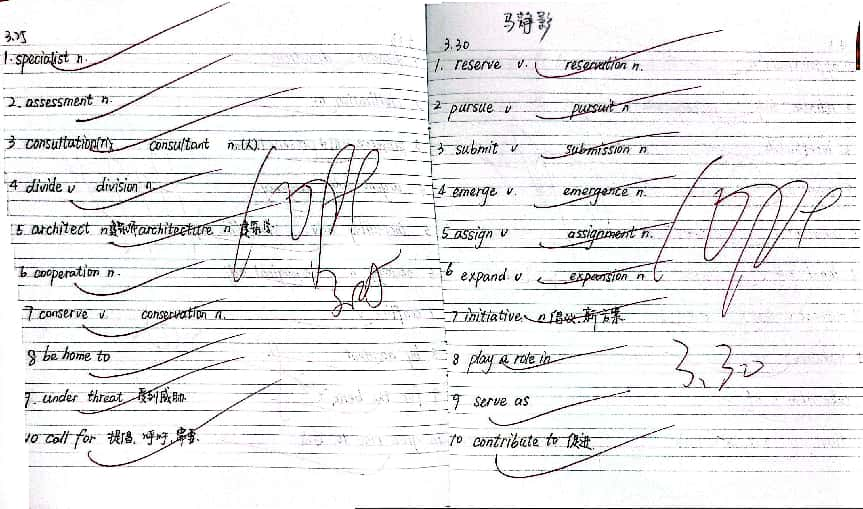 3.25
1. specialist n.
2. assessment n.
3 consultation(n); consultant n.(人)
4 divide v division n.
5. architect n 建筑师 architecture n 建筑学
6 cooperation n.
7 conserve v. conservation n.
8 be home to
9. under threat 受到威胁
10 call for 提倡, 呼吁, 需要.
100
3.25
马静影
3.30
1. reserve v. reservation n.
2 pursue v pursuit n
3 submit v submission n
4 emerge v. emergence n.
5 assign v assignment n.
6 expand v expansion n
7 initiative n 倡议, 新方案
8 play a role in
9 serve as
10 contribute to 促进
100
3.30